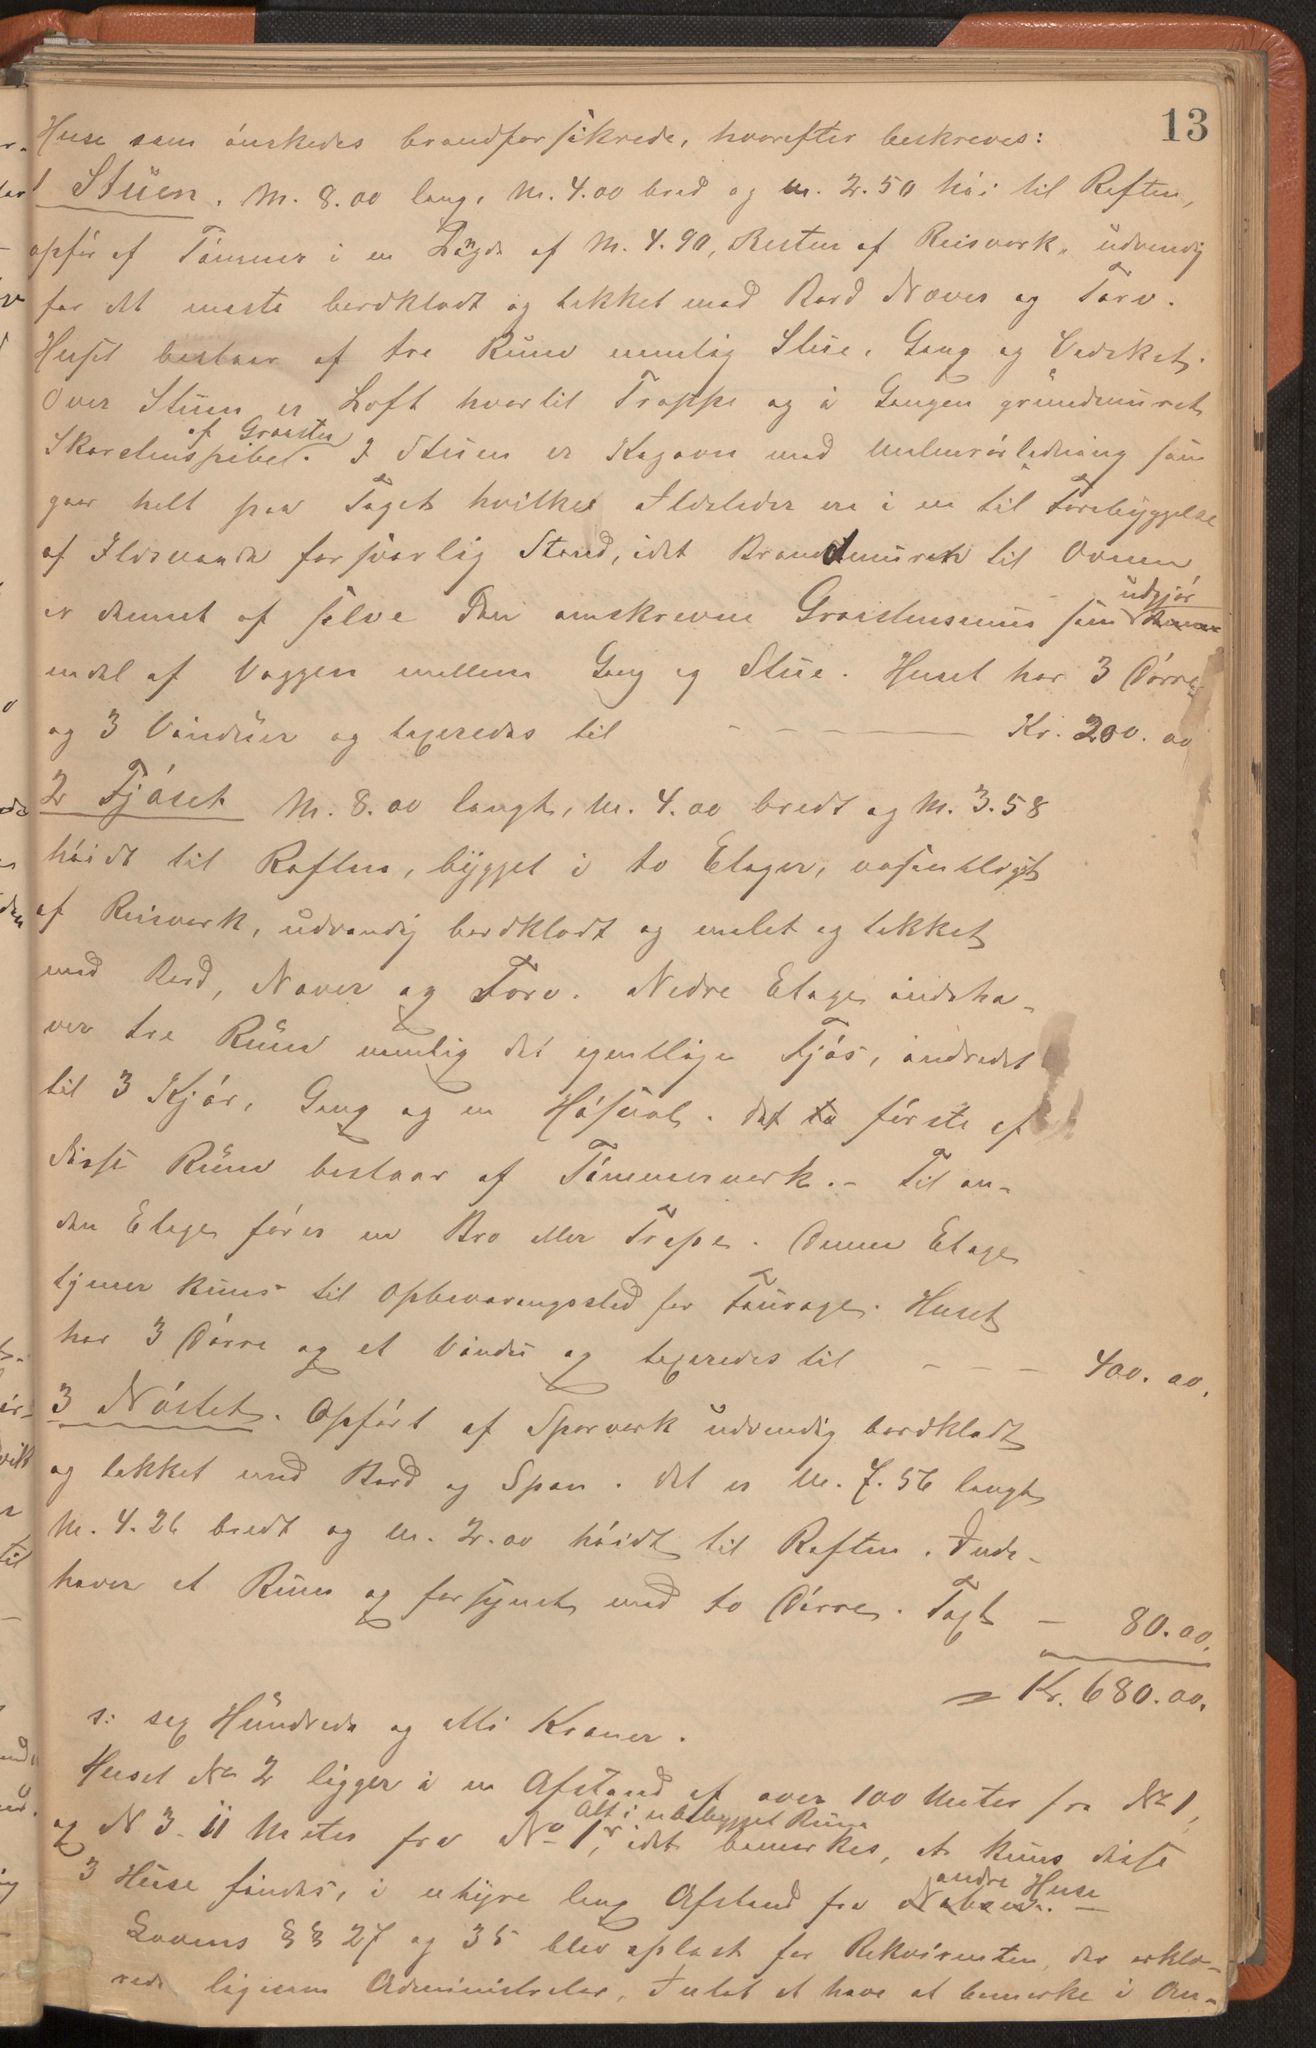 13
Huse som ønskedes brandforsikrede, hvorefter beskreves:
1 Stuen. M. 8.00 lang, M. 4.00 bred og M. 2.50 høi til Raften,
opfør af Tømmer i en Længde af M. 4.90, Resten af Reisverk, udvendig
for det meste bordklædt og tækket med Bord Næver og Torv.
Huset bestaar af tre Rum nemlig Stue, Gang og Vedskot.
Over Stuen er Loft hvortil Trappe og i Gangen grundmuret
Skorstenspibe af Graasten. I Stuen er Kogeovn med Malmrørledning som
gaar helt paa Taget hvilke Ildsteder ere i en til Forebyggelse
af Ildsvaade forsvarlig Stand, idet Brandmuren til Ovnen
er dannet af selve den omskrevne Graastensmur som udgjør
endel af Væggen mellem Gang og Stue. Huset har 3 Dørre
og 3 Vinduer og taxeredes til - - - - Kr. 200.00
2 Fjøset M. 8.00 langt, M. 4.00 bredt og M. 3.58
høidt til Raften, bygget i to Etager, væsentligst
af Reisverk, udvendig bordklædt og malet og tækket
med Bord, Næver og Torv. Nedre Etage indeha-
ver tre Rum nemlig det egentlige Fjøs, indredet
til 3 Kjør, Gang og en Høsval. Det første af
disse Rum bestaar af Tømmerverk. - Til an-
den Etage fører en Bro eller Trape. Denne Etage
tjener kuns til Opbevaringssted for Fourage. Huset
har 3 Dørre og et Vindu og taxeredes til - - - 400.00.
3 Nøstet. Opført af Sperverk udvendig bordklædt
og tækket med Bord og Spon. Det er M. 7.56 langt
M. 4.26 bredt og M. 2.00 høidt til Raften. Inde-
haver et Rum og forsynet med to Dørre. Taxt — 80.00.
Kr. 680.00.
s: sex Hundrede og otti Kroner.
Huset No 2 ligger i en Afstand af over 100 Meter fra No 1,
og N 3 11 Meter fra No 1, Alt i ubebygget Rum, idet bemærkes, at kuns disse
3 Huse findes, i uhyre lang Afstand fra andre Huse
Lovens §§ 27 og 35 blev oplæst for Rekvirenten, der erklæ-
rede ligesom Administrator, Intet at have at bemærke i An-